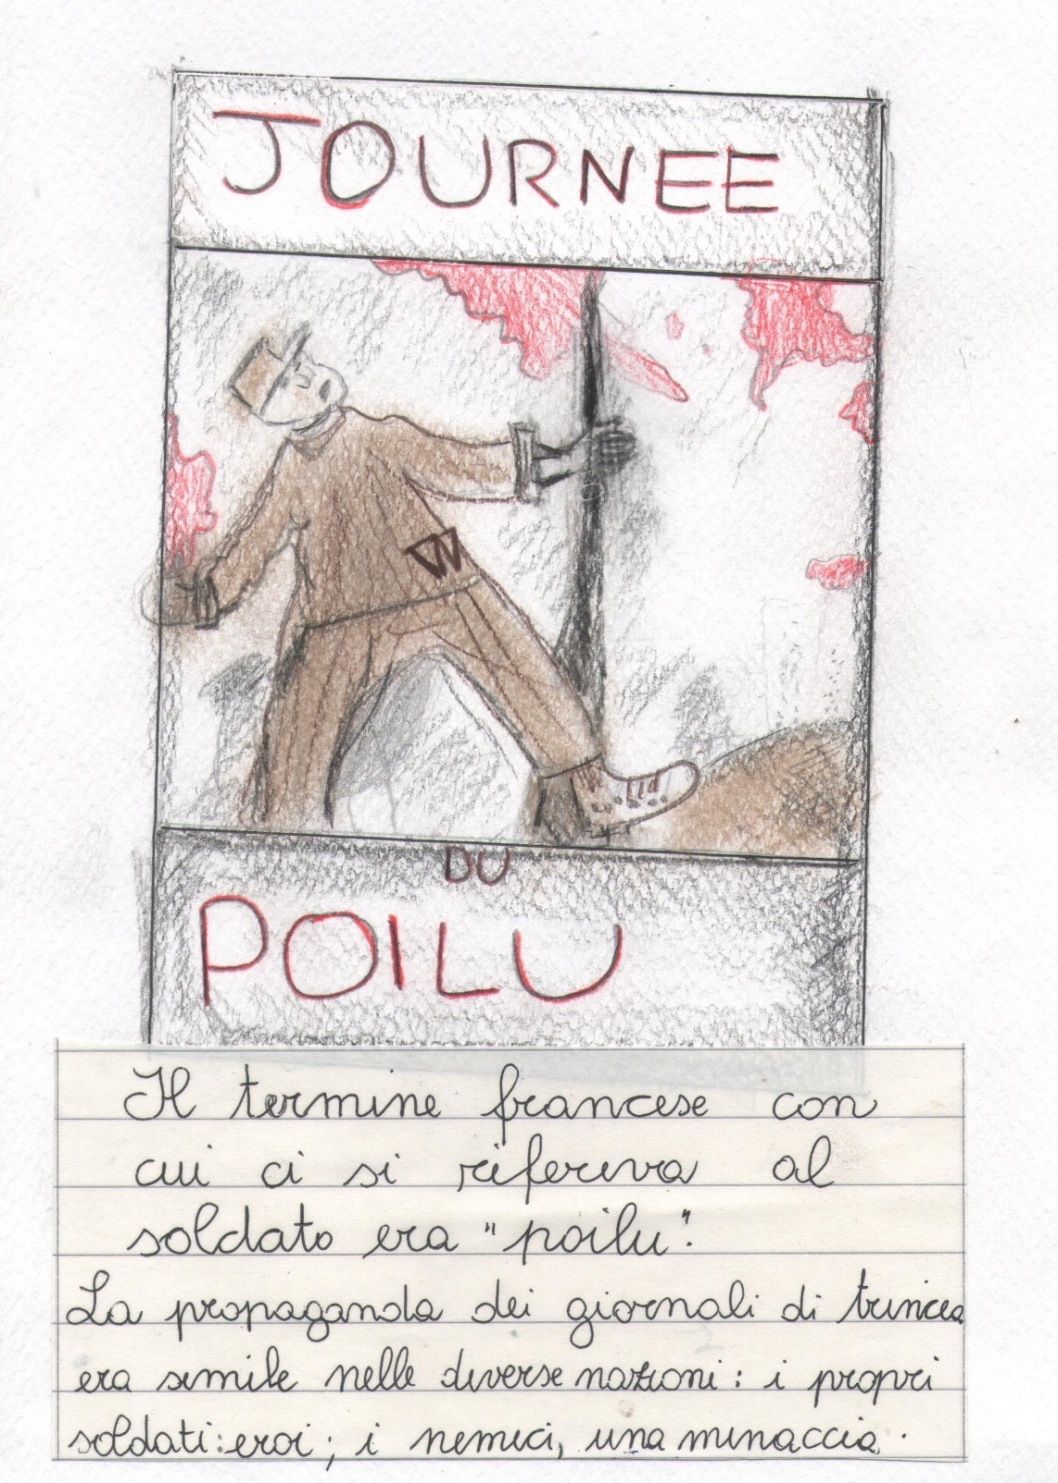 JOURNEE
DU
POILU
Il termine francese con
cui ci si riferiva al
soldato era "poilu".
La propaganda dei giornali di trincea
era simile nelle diverse nazioni: i propri
soldati: eroi; i nemici, una minaccia.